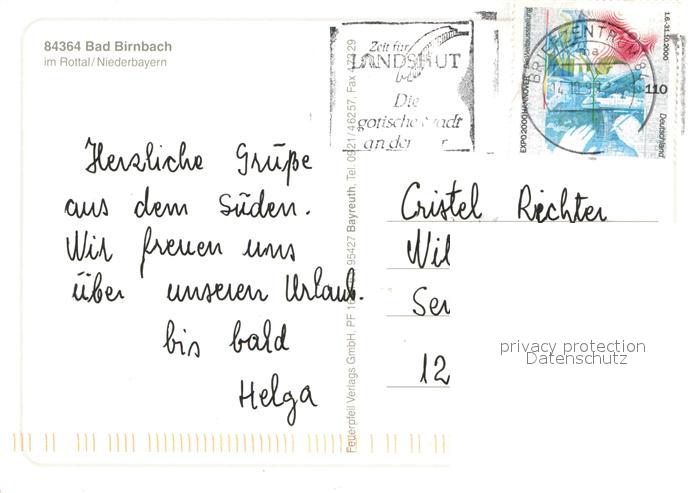 84364 Bad Birnbach
im Rottal/Niederbayern
Zeit für
LANDSHUT
Die
gotische Stadt
an der
BRIEFZENTRUM 84
EXPO 2000 HANNOVER Die Weltausstellung
1.6.-31.10.2000
110
Deutschland
Herzliche Grüße
aus dem Süden.
Wir freuen uns
über unseren Urlaub.
bis bald
Helga
Cristel Richter
Wil
Ser
12
privacy protection
Datenschutz
Feuerpfeil Verlags GmbH, PF 95427 Bayreuth, Tel. 0921/46257, Fax 29